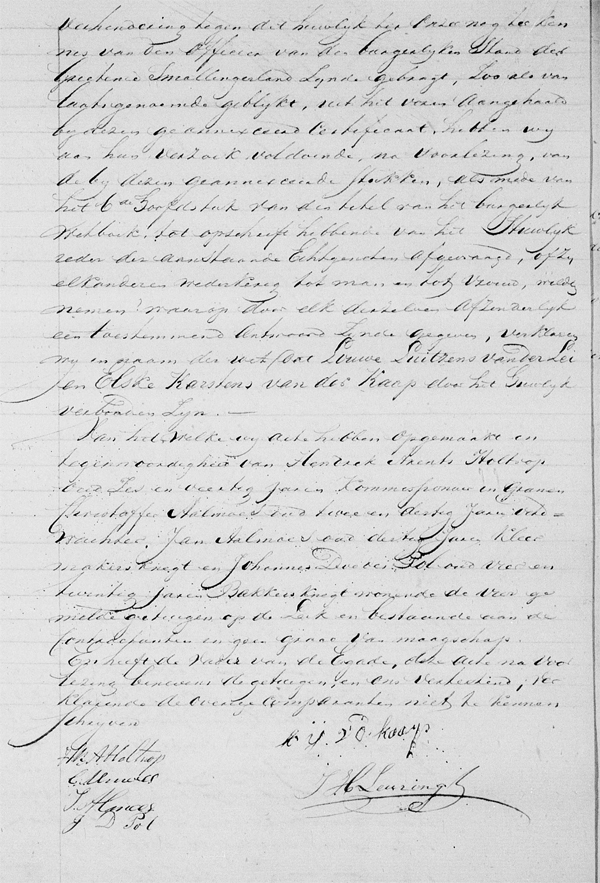 Verhindering tegen dit huwelijk ter Onze nog ter ken
nis van den Officier van den burgerlyken Stand der
Grietenie Smallingerland Zynde gebragt, Zoo als van
laatstgenoemde geblykt, uit het voren Aangehaald
by dezen geannexeerd Certificaat, hebben wy
aan hun Verzoek voldoende, na voorlezing, van
de by dezen geannexeerde stukken, als mede van
het 6de Hoofdstuk van den titel van het burgerlyk
Wetboek, tot opschrift hebbende van het Huwlyk
ieder der aanstaande Echtgenoten Afgevraagd, of zy
elkanderen wederkerig tot man en tot Vrouw, wilden
nemen? waarop door elk derzelven Afzonderlyk
een toestemmend Antwoord Zynde gegeven, verklaren
wy in naam der wet, dat Louwe Luitzens van der Lei
en Elske Karstens van der Kaap door het Huwlyk
verbonden Zyn. —
Van het welke wy acte hebben opgemaakt en
tegenwoordigheid van Hendrik Arents Holtrop
oud Zes en veertig Jaren Kommissionair in Granen
Aalmoes oud twee en dertig Jaren Verw=
Wachter, Jan Aalmoes oud dertig Jaren Kleer
makersknegt en Johannes Douwes Pol oud vier en
twintig Jaren Bakkersknegt wonende de vier ge
melde getuigen op de Leik en bestaande aan de
Contractanten en geen graad van maagschap.
En heeft de Vader van de Bruid, deze Acte na Voor
lezing benevens de getuigen, en Ons Vertekend, ver
klarende de overige Comparanten niet te kunnen
schryven
k y v d kaap
H A Holtrop
J D Pol